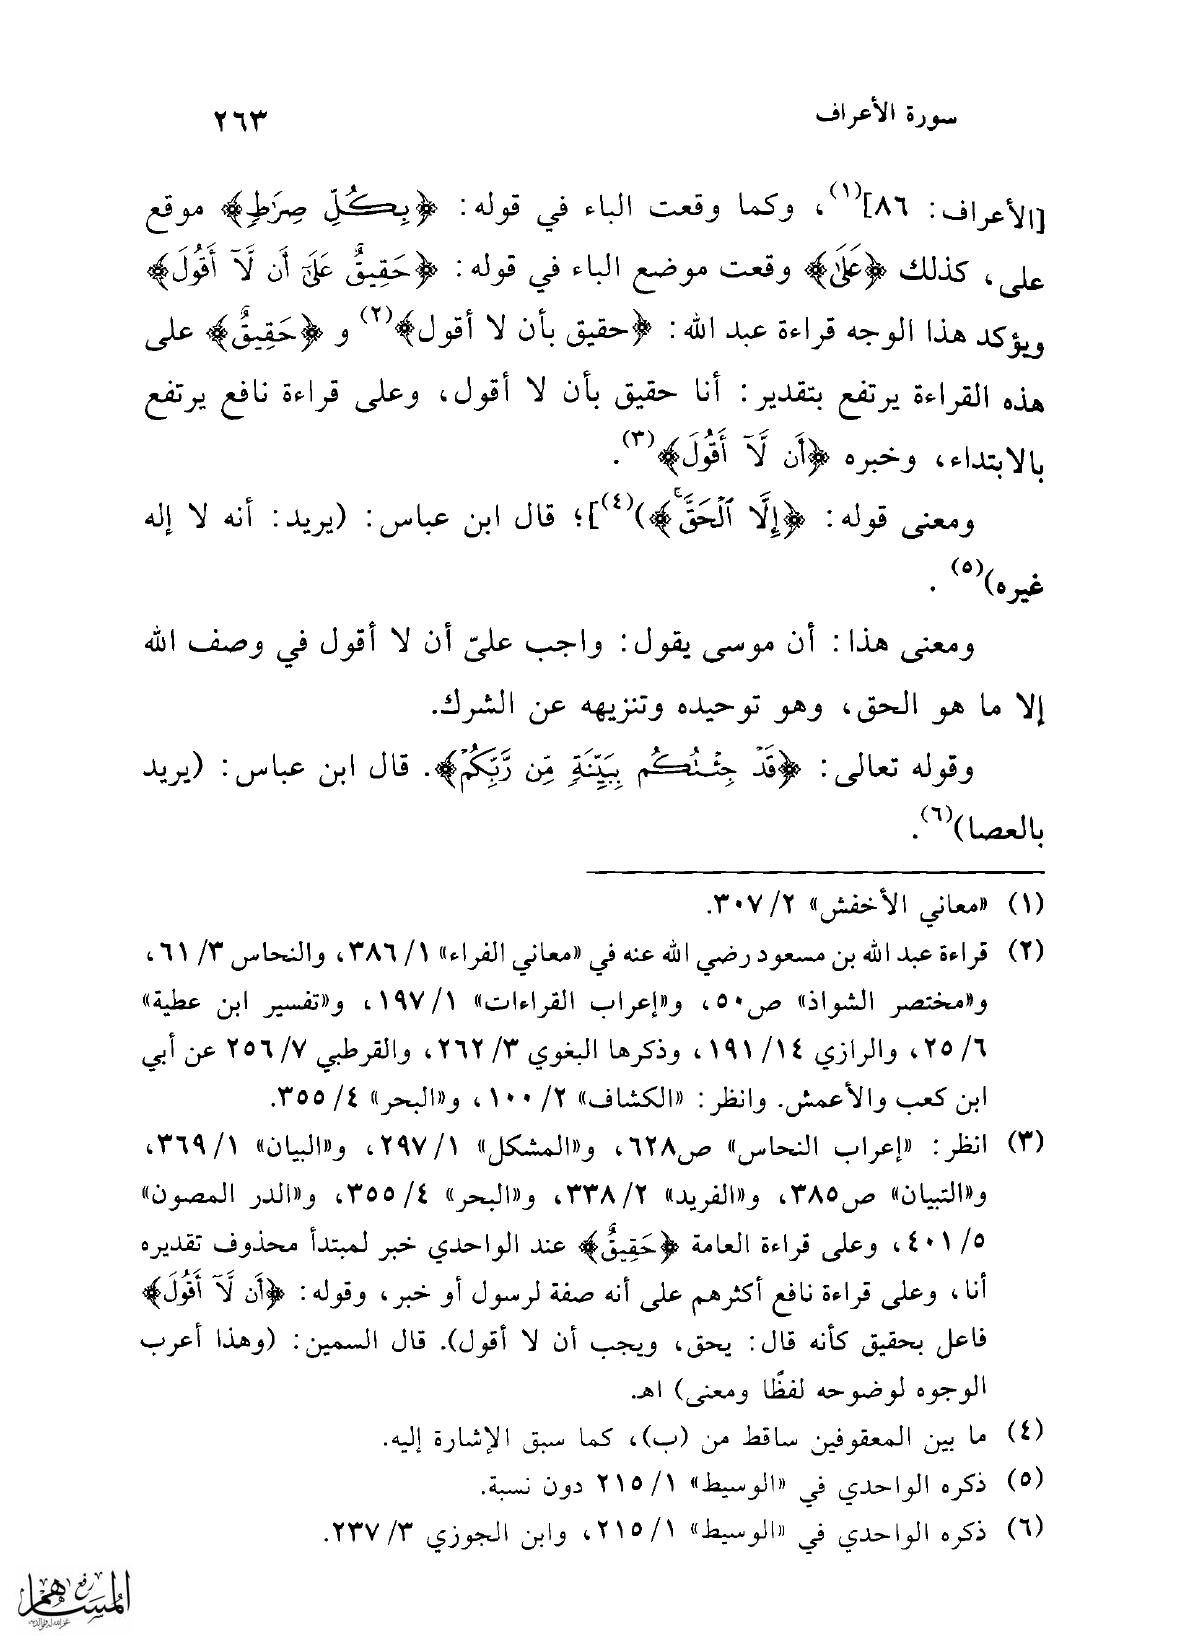 سورة الأعراف ٢٦٣
[الأعراف: ٨٦](١)، وكما وقعت الباء في قوله: ﴿بِكُلِّ صِرَٰطٍ﴾ موقع
على، كذلك ﴿عَلَىٰ﴾ وقعت موضع الباء في قوله: ﴿حَقِيقٌ عَلَىٰٓ أَن لَّآ أَقُولَ﴾
ويؤكد هذا الوجه قراءة عبد الله: ﴿حقيق بأن لا أقول﴾(٢) و ﴿حَقِيقٌ﴾ على
هذه القراءة يرتفع بتقدير: أنا حقيق بأن لا أقول، وعلى قراءة نافع يرتفع
بالابتداء، وخبره ﴿أَن لَّآ أَقُولَ﴾(٣).
ومعنى قوله: ﴿إِلَّا ٱلْحَقَّۚ﴾)(٤)]؛ قال ابن عباس: (يريد: أنه لا إله
غيره)(٥) .
ومعنى هذا: أن موسى يقول: واجب عليّ أن لا أقول في وصف الله
إلا ما هو الحق، وهو توحيده وتنزيهه عن الشرك.
وقوله تعالى: ﴿قَدْ جِئْتُكُم بِبَيِّنَةٍ مِّن رَّبِّكُمْ﴾. قال ابن عباس: (يريد
بالعصا)(٦).
(١) «معاني الأخفش» ٢/ ٣٠٧.
(٢) قراءة عبد الله بن مسعود رضي الله عنه في «معاني الفراء» ١/ ٣٨٦، والنحاس ٣/ ٦١،
و«مختصر الشواذ» ص٥٠، و«إعراب القراءات» ١/ ١٩٧، و«تفسير ابن عطية»
٦/ ٢٥، والرازي ١٤/ ١٩١، وذكرها البغوي ٣/ ٢٦٢، والقرطبي ٧/ ٢٥٦ عن أبي
ابن كعب والأعمش. وانظر: «الكشاف» ٢/ ١٠٠، و«البحر» ٤/ ٣٥٥.
(٣) انظر: «إعراب النحاس» ص٦٢٨، و«المشكل» ١/ ٢٩٧، و«البيان» ١/ ٣٦٩،
و«التبيان» ص٣٨٥، و«الفريد» ٢/ ٣٣٨، و«البحر» ٤/ ٣٥٥، و«الدر المصون»
٥/ ٤٠١، وعلى قراءة العامة ﴿حَقِيقٌ﴾ عند الواحدي خبر لمبتدأ محذوف تقديره
أنا، وعلى قراءة نافع أكثرهم على أنه صفة لرسول أو خبر، وقوله: ﴿أَن لَّآ أَقُولَ﴾
فاعل بحقيق كأنه قال: يحق، ويجب أن لا أقول). قال السمين: (وهذا أعرب
الوجوه لوضوحه لفظًا ومعنى) اهـ.
(٤) ما بين المعقوفين ساقط من (ب)، كما سبق الإشارة إليه.
(٥) ذكره الواحدي في «الوسيط» ١/ ٢١٥ دون نسبة.
(٦) ذكره الواحدي في «الوسيط» ١/ ٢١٥، وابن الجوزي ٣/ ٢٣٧.